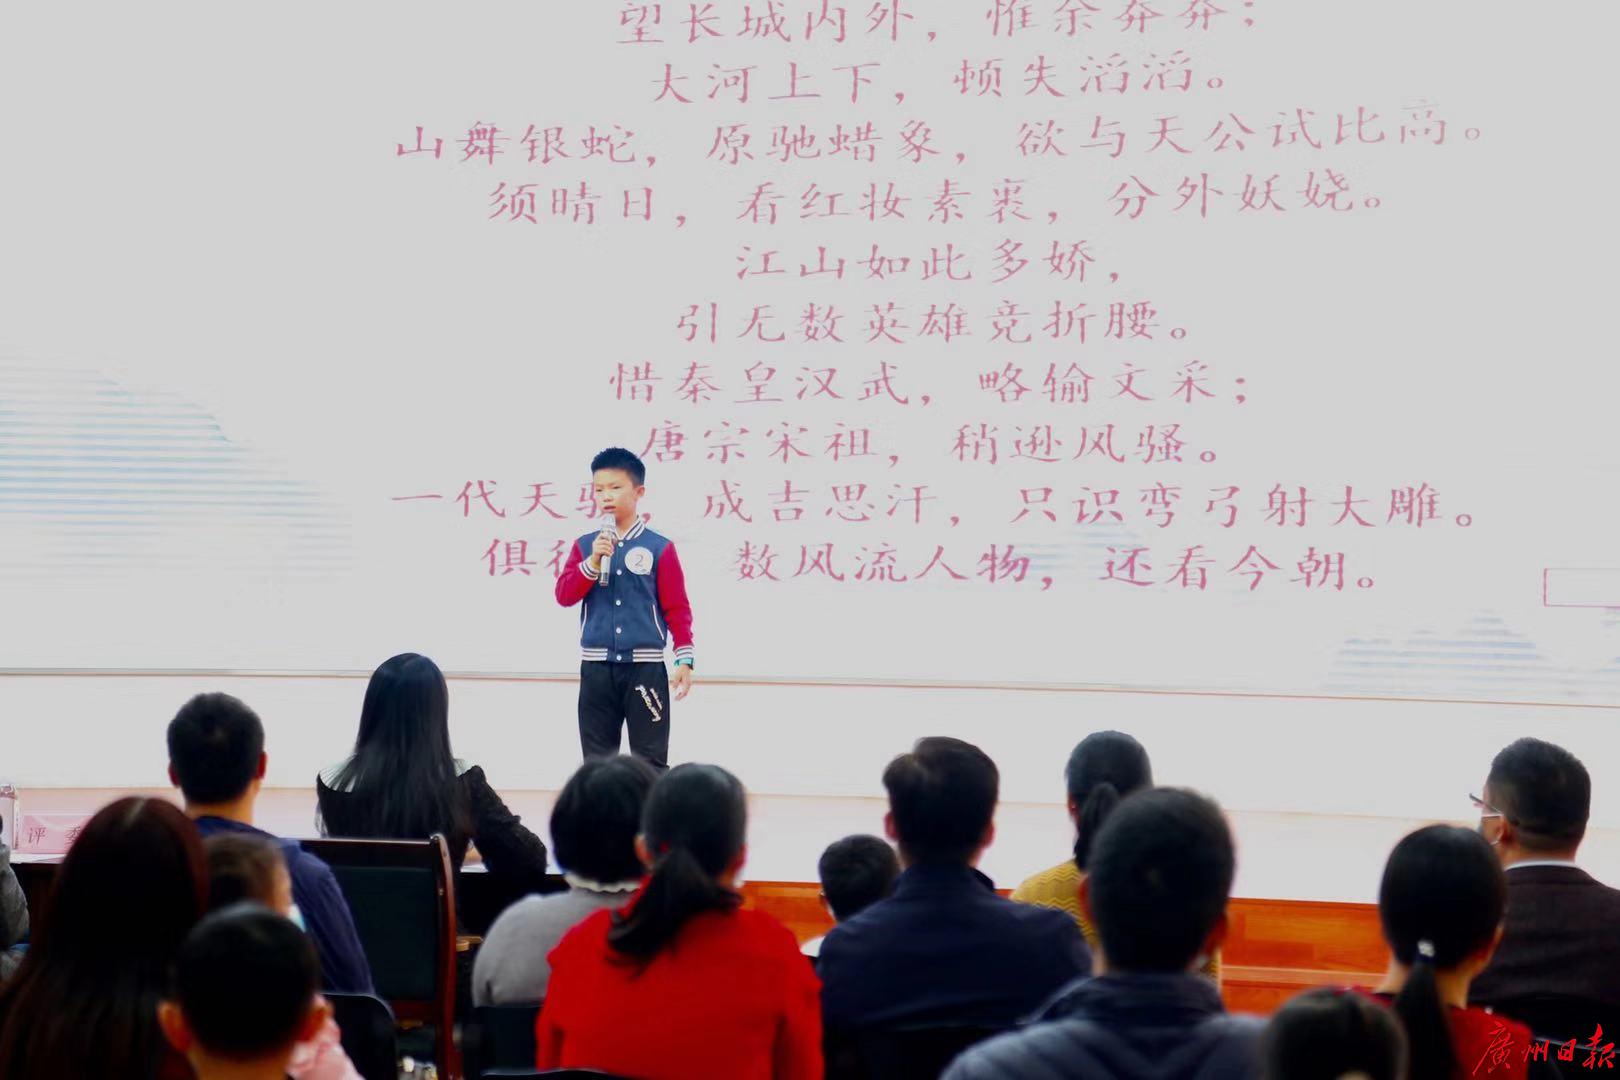 望长城内外，惟余莽莽；
大河上下，顿失滔滔。
山舞银蛇，原驰蜡象，欲与天公试比高。
须晴日，看红妆素裹，分外妖娆。
江山如此多娇，
引无数英雄竞折腰。
惜秦皇汉武，略输文采；
唐宗宋祖，稍逊风骚。
一代天骄，成吉思汗，只识弯弓射大雕。
俱往 数风流人物，还看今朝。
2
评 委
廣州日報